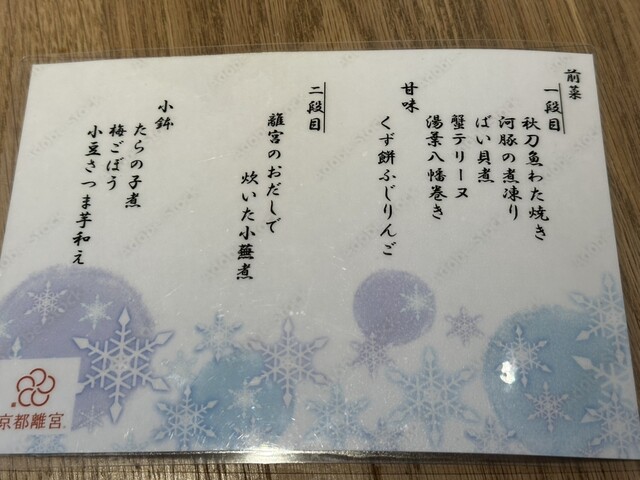 前菜
一段目
秋刀魚わた焼き
河豚の煮凍り
ばい貝煮
蟹テリーヌ
湯葉八幡巻き
甘味
くず餅ふじりんご
二段目
離宮のおだしで
炊いた小蕪煮
小鉢
たらの子煮
梅ごぼう
小豆さつま芋和え
京都離宮